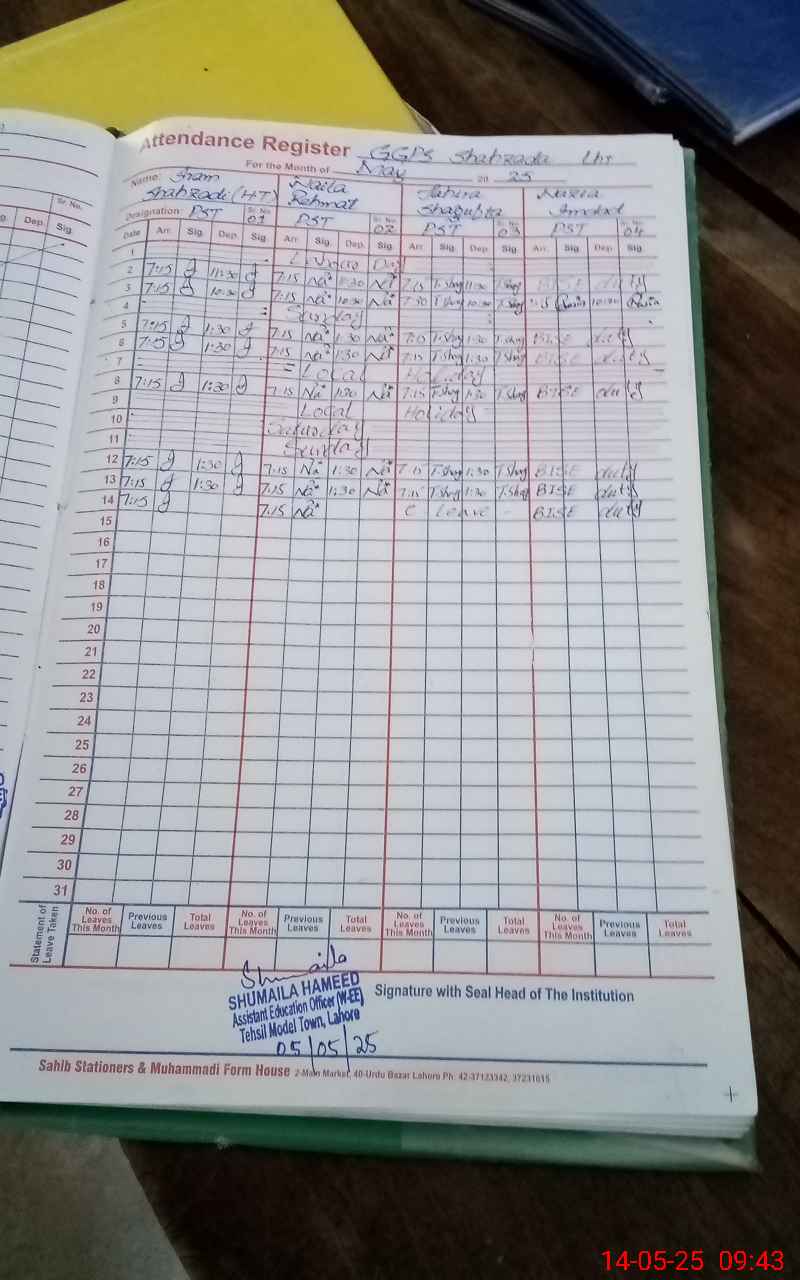 Attendance Register GGPS Shahzada Lhr
For the Month of May 20 25
Name: Iram Shahzadi (HT) Naila Rehmat Tahira Shagufta Nazia Amjad
Designation: PST Sr. No. 01 PST Sr. No. 02 PST Sr. No. 03 PST Sr. No. 04
Date Arr. Sig. Dep. Sig. Arr. Sig. Dep. Sig. Arr. Sig. Dep. Sig. Arr. Sig. Dep. Sig.
1 Day
2 7:15 11:30 7:15 11:30 7:15 T.Shag 11:30 T.Shag BISE duty
3 7:15 10:30 7:15 10:30 7:30 T.Shag 10:30 T.Shag 10:30
4 Sunday
5 7:15 1:30 7:15 1:30 T.Shag 1:30 T.Shag BISE duty
6 7:15 1:30 7:15 1:30 7:15 T.Shag 1:30 T.Shag BISE duty
7 Local Holiday
8 7:15 1:30 7:15 1:30 7:15 T.Shag 1:30 T.Shag BISE duty
9 Local Holiday
10 Saturday
11 Sunday
12 7:15 1:30 7:15 1:30 7:15 T.Shag 1:30 T.Shag BISE duty
13 7:15 1:30 7:15 1:30 7:15 T.Shag 1:30 T.Shag BISE duty
14 7:15 7:15 C Leave BISE duty
15
16
17
18
19
20
21
22
23
24
25
26
27
28
29
30
31
Statement of Leave Taken
No. of Leaves This Month Previous Leaves Total Leaves No. of Leaves This Month Previous Leaves Total Leaves No. of Leaves This Month Previous Leaves Total Leaves No. of Leaves This Month Previous Leaves Total Leaves
Shumaila
SHUMAILA HAMEED
Assistant Education Officer (W-EE)
Tehsil Model Town, Lahore
05/05/25
Signature with Seal Head of The Institution
Sahib Stationers & Muhammadi Form House 2-Main Market, 40-Urdu Bazar Lahore Ph: 42-37123342, 37231015
Sr. No.
Dep. Sig.
14-05-25 09:43